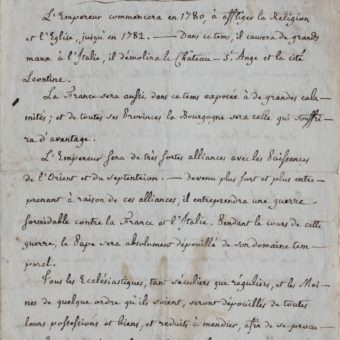 L'Empereur commencera en 1780, à affliger la Religion
et l'Eglise, jusqu'en 1782. — Dans ce tems, il causera de grands
maux à l'Italie, il démolira le Château — St. Ange et la cité
Léontine.
La France sera aussi dans ce tems exposée à de grandes cala-
mités; et de toutes ses Provinces la Bourgogne sera celle qui souffri-
ra d'avantage.
L'Empereur fera de très fortes alliances avec les Puissances
de l'Orient et du Septentrion. — Devenu plus fort et plus entre-
prenant à raison de ces alliances, il entreprendra une guerre
formidable contre la France et l'Italie. Pendant le cours de cette
guerre, le Pape sera absolument dépouillé de son domaine tem-
porel.
Tous les Ecclésiastiques, tant séculiers que réguliers, et les Moi-
nes de quelque ordre qu'ils soient, seront dépouillés de toutes
leurs possessions et biens, et réduits à mendier, afin de se procu-